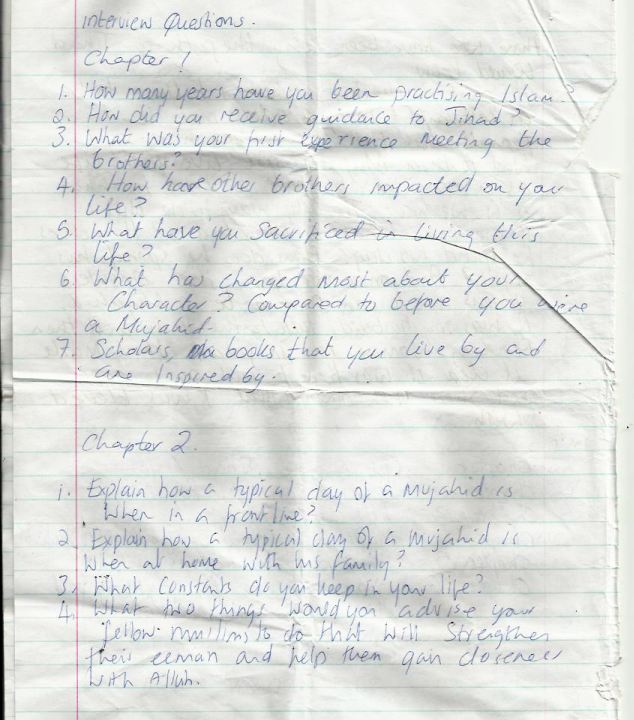 interview Questions.
Chapter 1
1. How many years have you been practising Islam?
2. How did you receive guidance to Jihad?
3. What was your first experience meeting the
brothers?
4. How have other brothers impacted on your
life?
5. What have you sacrificed in living this
life?
6. What has changed most about your
Character? Compared to before you were
a Mujahid.
7. Scholars, books that you live by and
are inspired by.
Chapter 2.
1. Explain how a typical day of a mujahid is
when in a frontline?
2. Explain how a typical day of a mujahid is
when at home with his family?
3. What Constants do you keep in your life?
4. What two things would you advise your
fellow muslims to do that will strengthen
their eeman and help them gain closeness
with Allah.